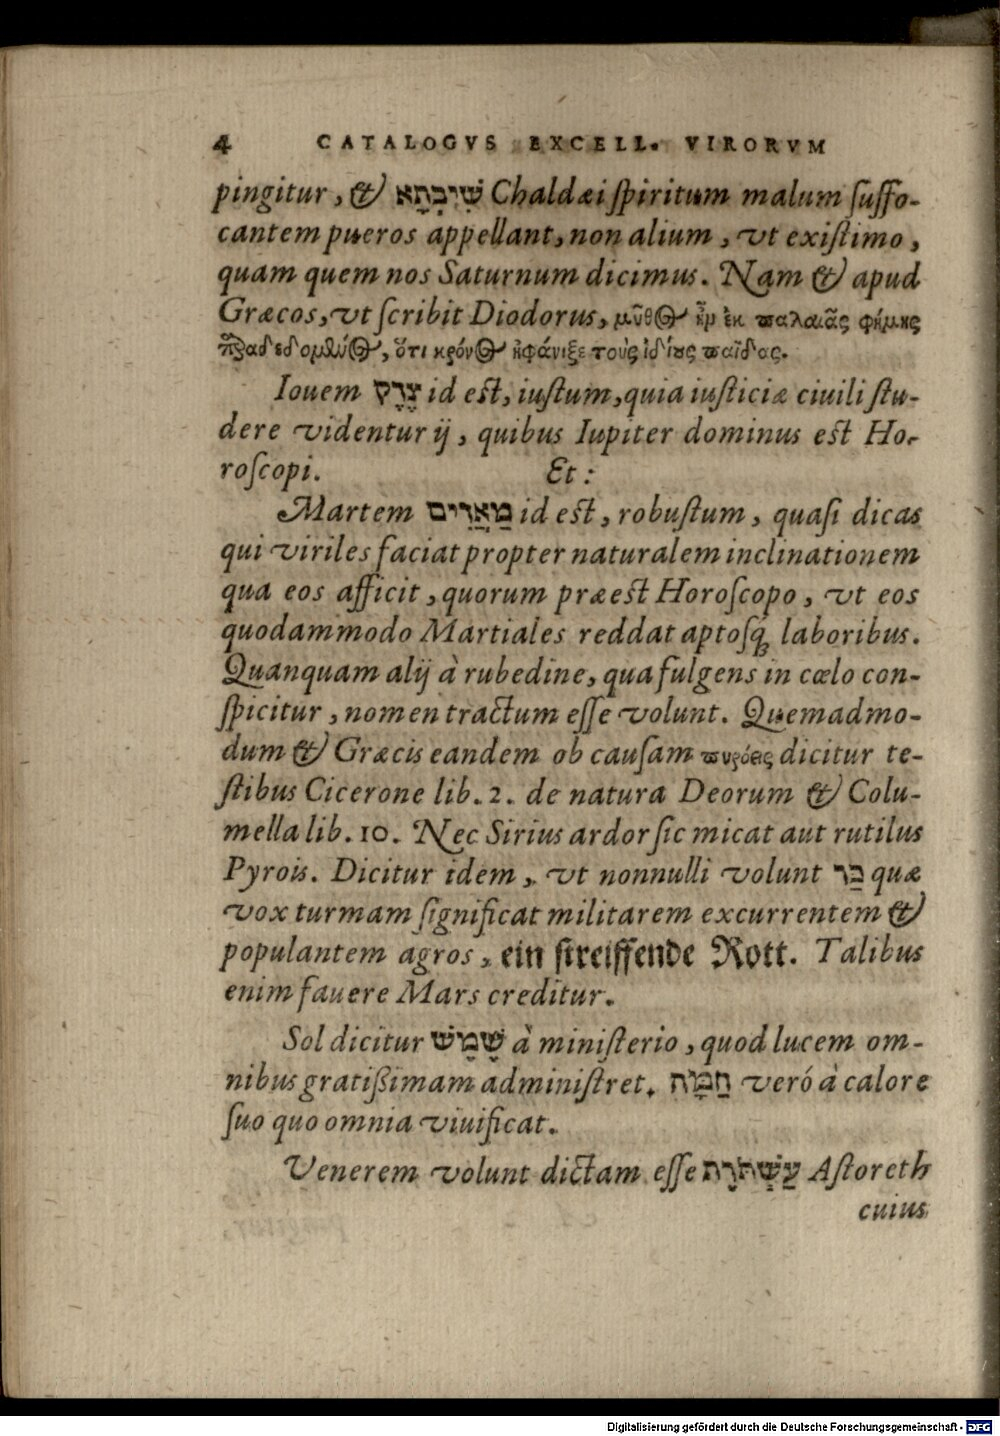 4 CATALOGVS EXCELL. VIRORVM
pingitur, & שִׁיבְתָא Chaldæi ſpiritum malum ſuffo-
cantem pueros appellant, non alium, vt exiſtimo,
quam quem nos Saturnum dicimus. Nam & apud
Græcos, vt ſcribit Diodorus, μῦθος ἦν ἐκ παλαιᾶς φήμης
παραδεδομένος, ὅτι κρόνος ἠφάνιξε τοὺς ἰδίους παῖδας.
Iouem צֶדֶק id est, iuſtum, quia iuſticiæ ciuili ſtu-
dere videntur ij, quibus Iupiter dominus est Ho-
roſcopi. Et:
Martem מַאֲדִים id est, robuſtum, quaſi dicas
qui viriles faciat propter naturalem inclinationem
qua eos afficit, quorum præest Horoſcopo, vt eos
quodammodo Martiales reddat aptoſq́; laboribus.
Quanquam alij à rubedine, qua fulgens in cœlo con-
ſpicitur, nomen tractum eſſe volunt. Quemadmo-
dum & Græcis eandem ob cauſam πυρόεις dicitur te-
ſtibus Cicerone lib. 2. de natura Deorum & Colu-
mella lib. 10. Nec Sirius ardor ſic micat aut rutilus
Pyrois. Dicitur idem, vt nonnulli volunt בַּר quæ
vox turmam ſignificat militarem excurrentem &
populantem agros, ein ſtreiffende Rott. Talibus
enim fauere Mars creditur.
Sol dicitur שָׁמָשׁ à miniſterio, quod lucem om-
nibus gratißimam adminiſtret. חַמָּה veró à calore
ſuo quo omnia viuificat.
Venerem volunt dictam eſſe עַשְׁתֹּרֶת Aſtoreth
cuius
Digitalisierung gefördert durch die Deutsche Forschungsgemeinschaft - DFG